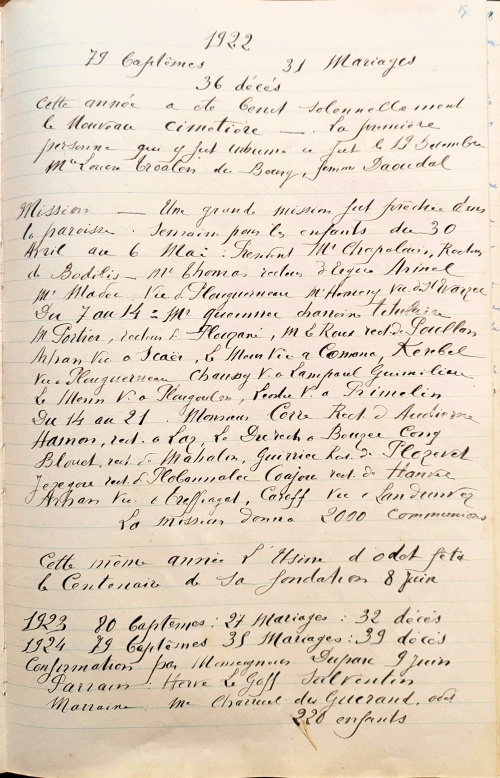 1922
79 Baptêmes 31 Mariages
36 décés
Cette année a été benit solennellement
le Nouveau cimetière — . La première
personne qui y fut inhumée ce fut le 19 Decembre
Mme Louise Troalen du Bourg, femme Daoudal
Mission — Une grande mission fut prêchée dans
la paroisse. Semaine pour les enfants du 30
Avril au 6 Mai : Prennent Mr Chapalain, Recteur
de Bodilis — Mr Thomas recteur d'Ergué Armel
Mr Madec, Vic d. Plouguerneau Mr
Du 7 au 14 = Mr Queinnec chanoine titulaire
M Portier, recteur d. Plougané, M E Roux rect. de Poullan
Arhan Vic a Scaër, Le Meur Vic a Comana, Kerebel
Vic a Plouguerneau Chaussy V. a Lampaul Guimiliau
Le Menn V. a Plougoulm, V. a Primelin
Du 14 au 21. Monsieur Corre Rect d'Audierne
Hamon, rect. a Laz, Le Du rect a Beuzec Conq
Blouet, rect. de Mahalon, Guirriec Rect. de Plozevet
Jezegou rect. d Plobannalec Coajou rect. de Hanvec
Arhan Vic. a Treffiagat, Caroff Vic a Landunvez
La mission donna 2000 communions
Cette même année l'Usine d'Odet fêta
le Centenaire de sa fondation 8 juin
1923 80 Baptêmes : 27 Mariages : 32 décés
1924 79 Baptêmes 35 Mariages : 39 décés
Confirmation par Monseigneur Duparc 9 juin
Parrain : Hervé Le Goff Salventin
Marraine : Me Charuel du Guerand, Odet
220 enfants